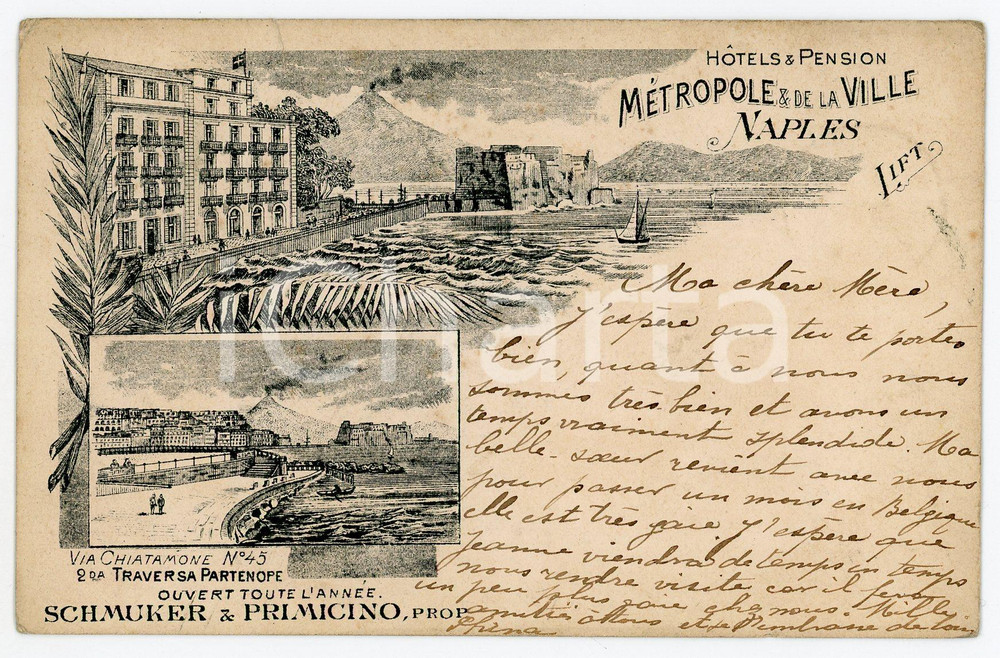 HÔTELS & PENSION
MÉTROPOLE & DE LA VILLE
NAPLES
LIFT
iCharta
Ma chère Mère,
J'espère que tu te portes
bien, quant à nous nous
sommes très bien et avons un
temps vraiment splendide. Ma
belle-sœur revient avec nous
pour passer un mois en Belgique
elle est très gaie J'espère que
Jeanne viendra de temps en temps
nous rendre visite car il fera
un peu plus gaie chez nous. Mille
amitiés à tous et je t'embrasse de loin
VIA CHIATAMONE Nº 45
2DA TRAVERSA PARTENOPE
OUVERT TOUTE L'ANNÉE.
SCHMUKER & PRIMICINO, PROP.